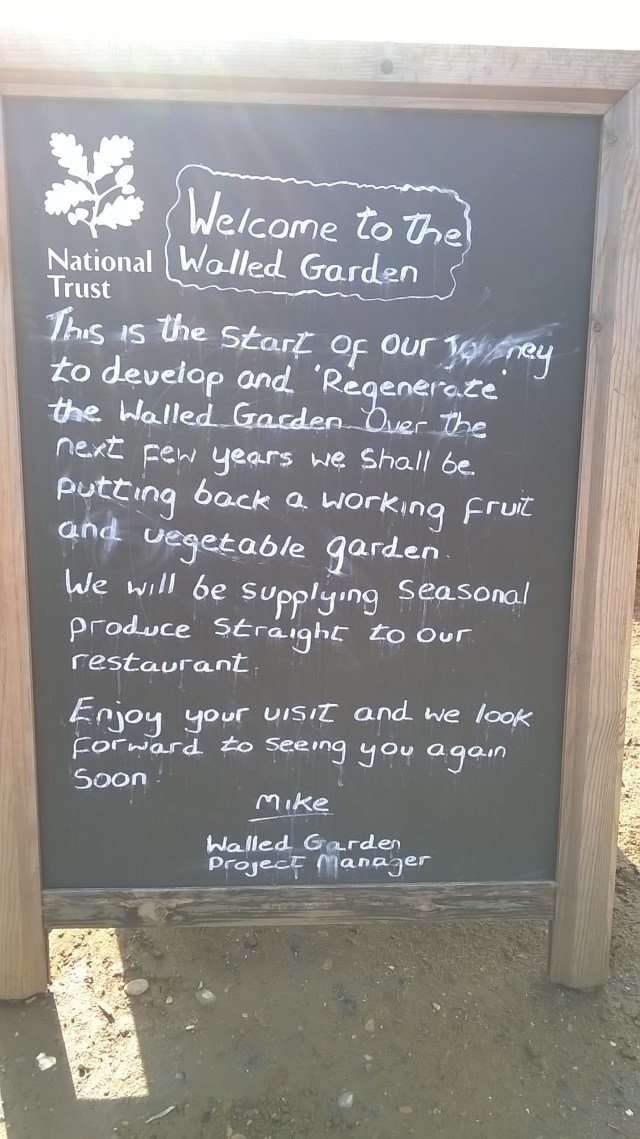 National
Trust
Welcome to the
Walled Garden
This is the start of our
to develop and 'Regenerate'
the Walled Garden Over the
next few years we shall be
putting back a working fruit
and vegetable garden.
We will be supplying seasonal
produce straight to our
restaurant.
Enjoy your visit and we look
forward to seeing you again
soon.
Mike
Walled Garden
Project Manager